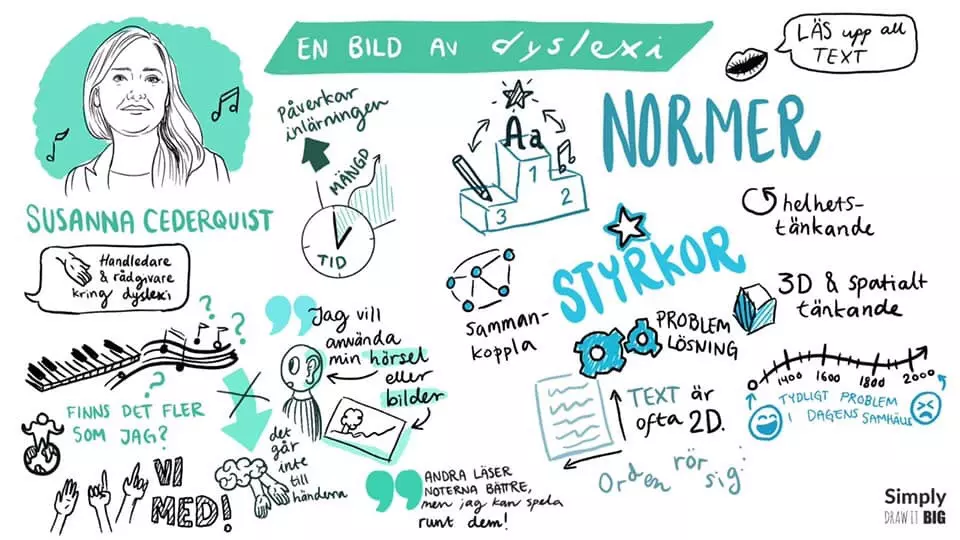 EN BILD AV dyslexi
LÄS upp all
TEXT
SUSANNA CEDERQUIST
Handledare
& rådgivare
kring dyslexi
Påverkar
inlärningen
MÄNGD
TID
Aa
1
2
3
NORMER
STYRKOR
helhets-
tänkande
3D & spatialt
tänkande
samman-
koppla
PROBLEM
LÖSNING
TEXT är
ofta 2D.
Orden rör sig
0
1400
1600
1800
2000
TYDLIGT PROBLEM
I DAGENS SAMHÄLLE
? ? ?
FINNS DET FLER
SOM JAG?
VI
MED!
"Jag vill
använda
min hörsel
eller
bilder
det
går
inte
till
händerna
"ANDRA LÄSER
NOTERNA BÄTTRE,
men jag kan spela
runt dem!
Simply
DRAW IT BIG